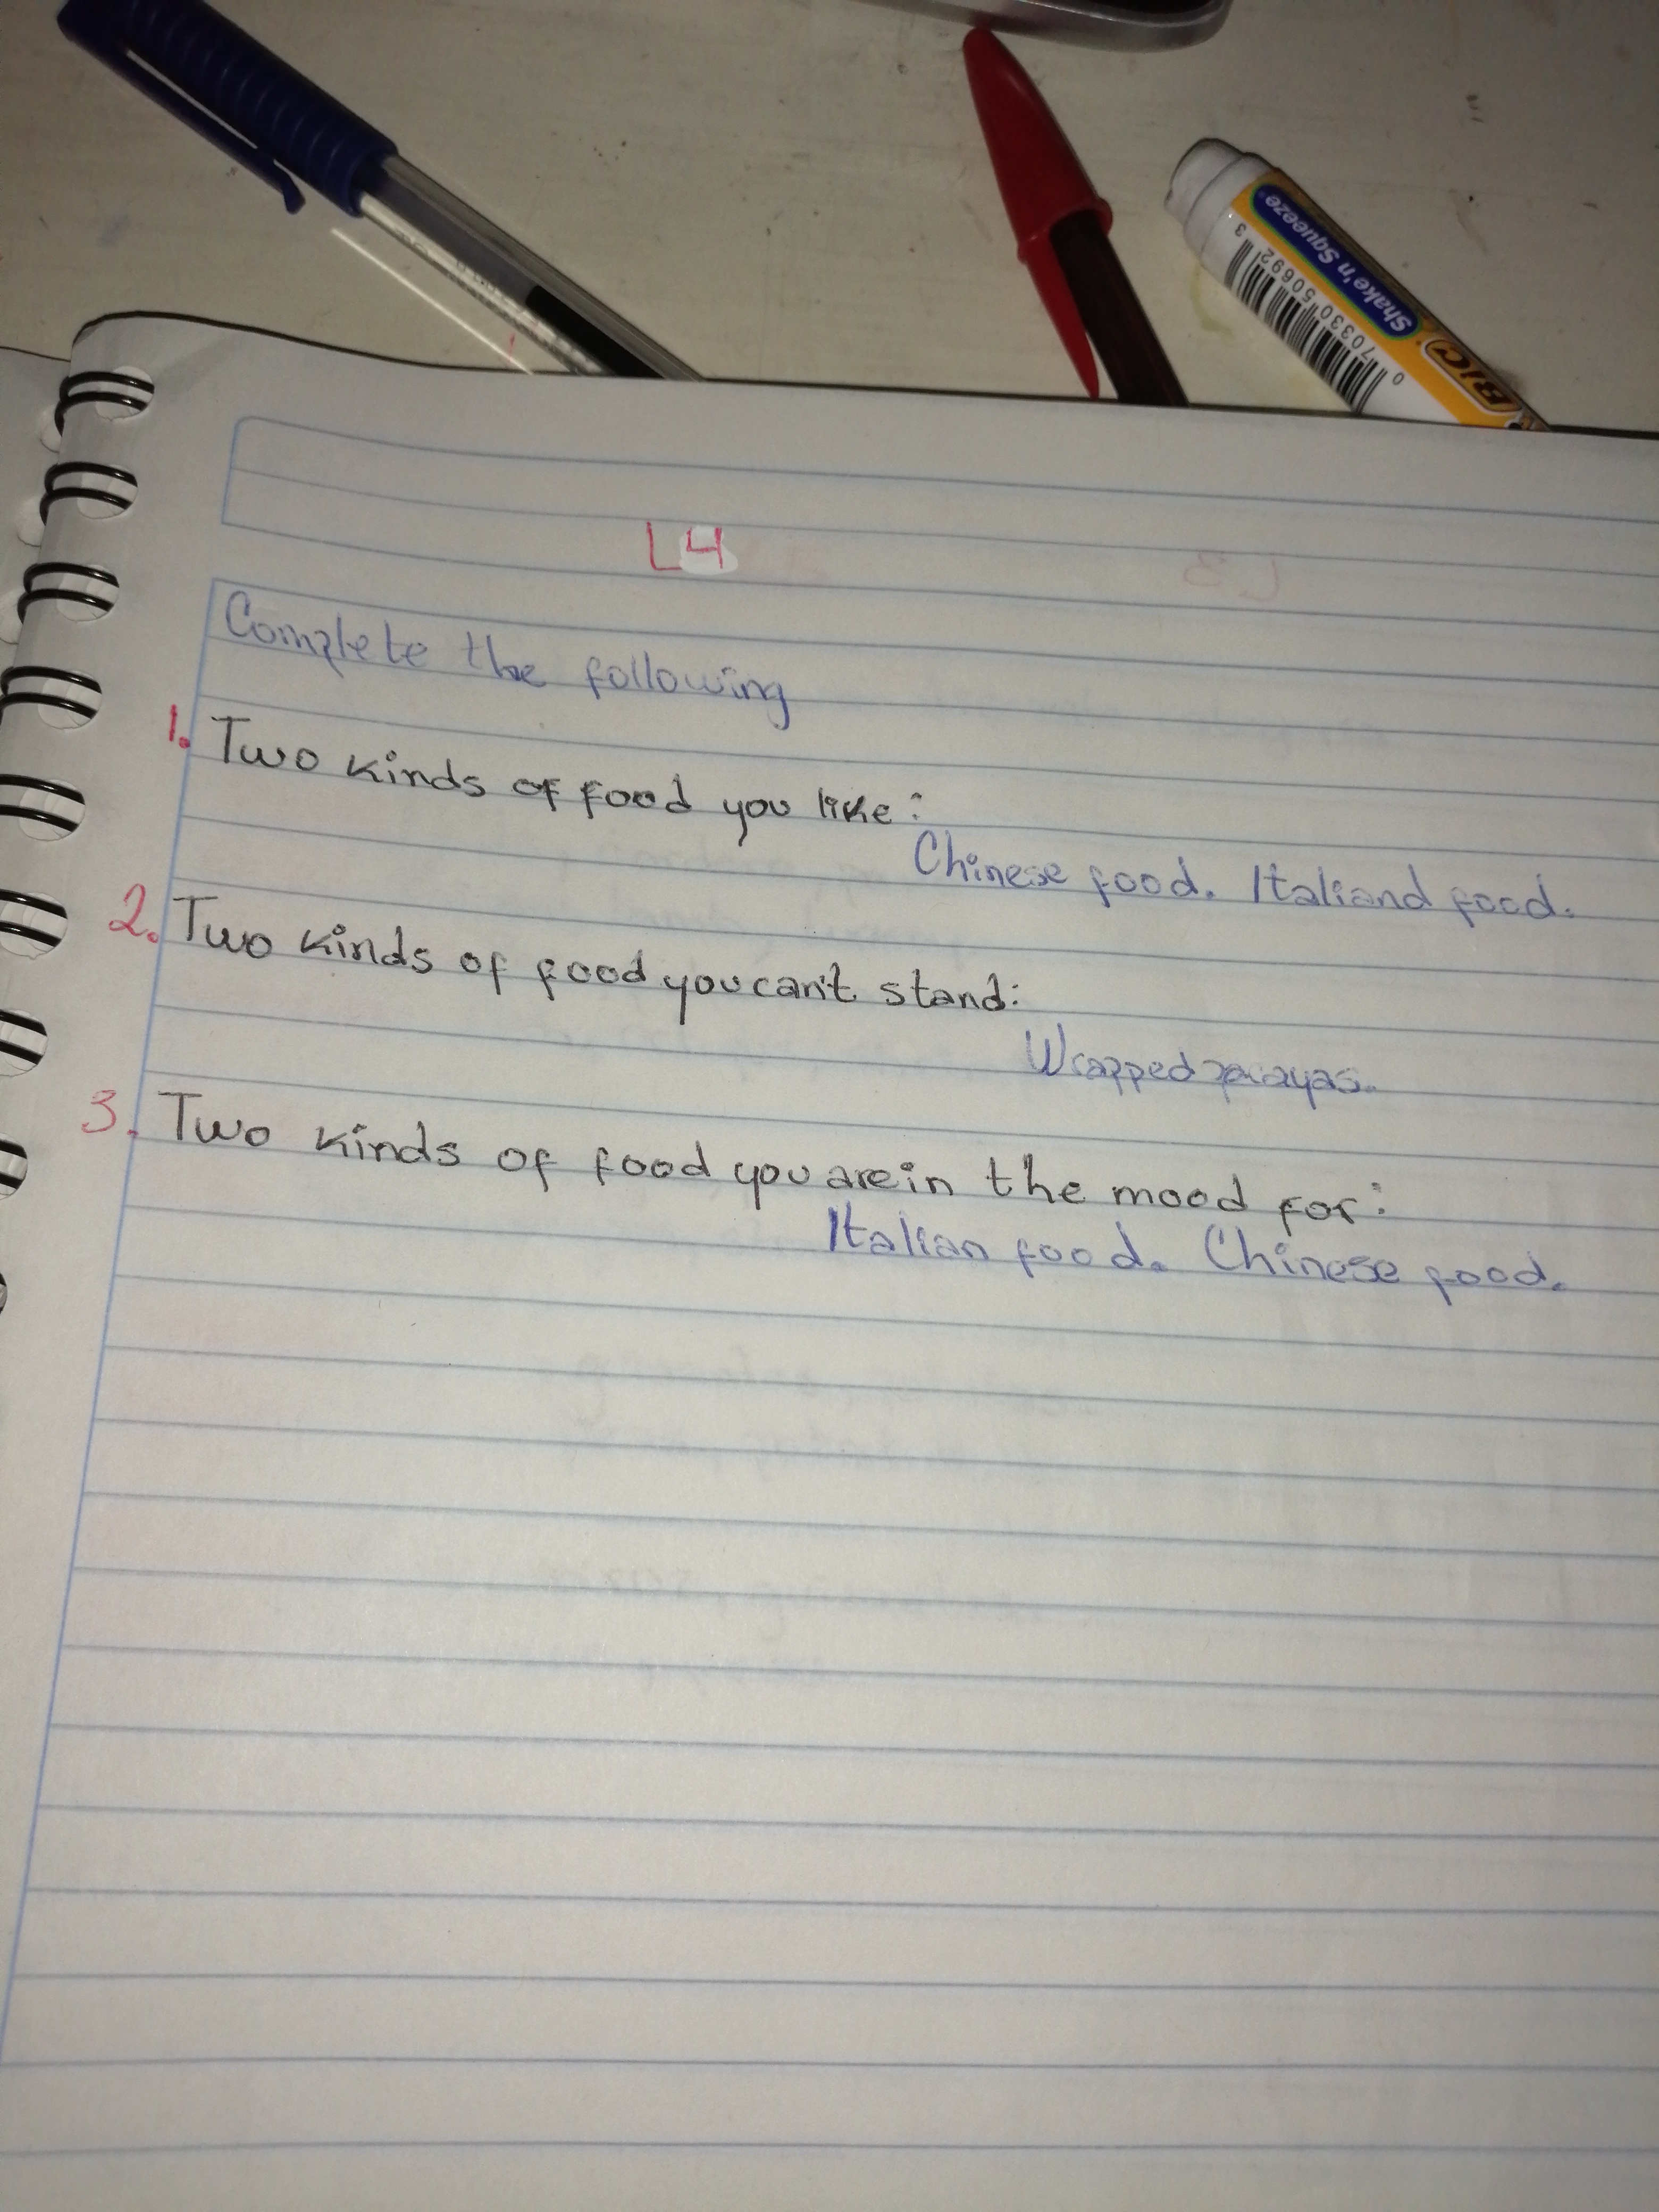 Shake'n Squeeze
BIC
0 70330 50692 3
L4
Complete the following
1. Two kinds of food you like:
Chinese food. Italiand food.
2. Two kinds of food you can't stand:
Wrapped pacayas.
3. Two kinds of food you are in the mood for:
Italian food. Chinese food.